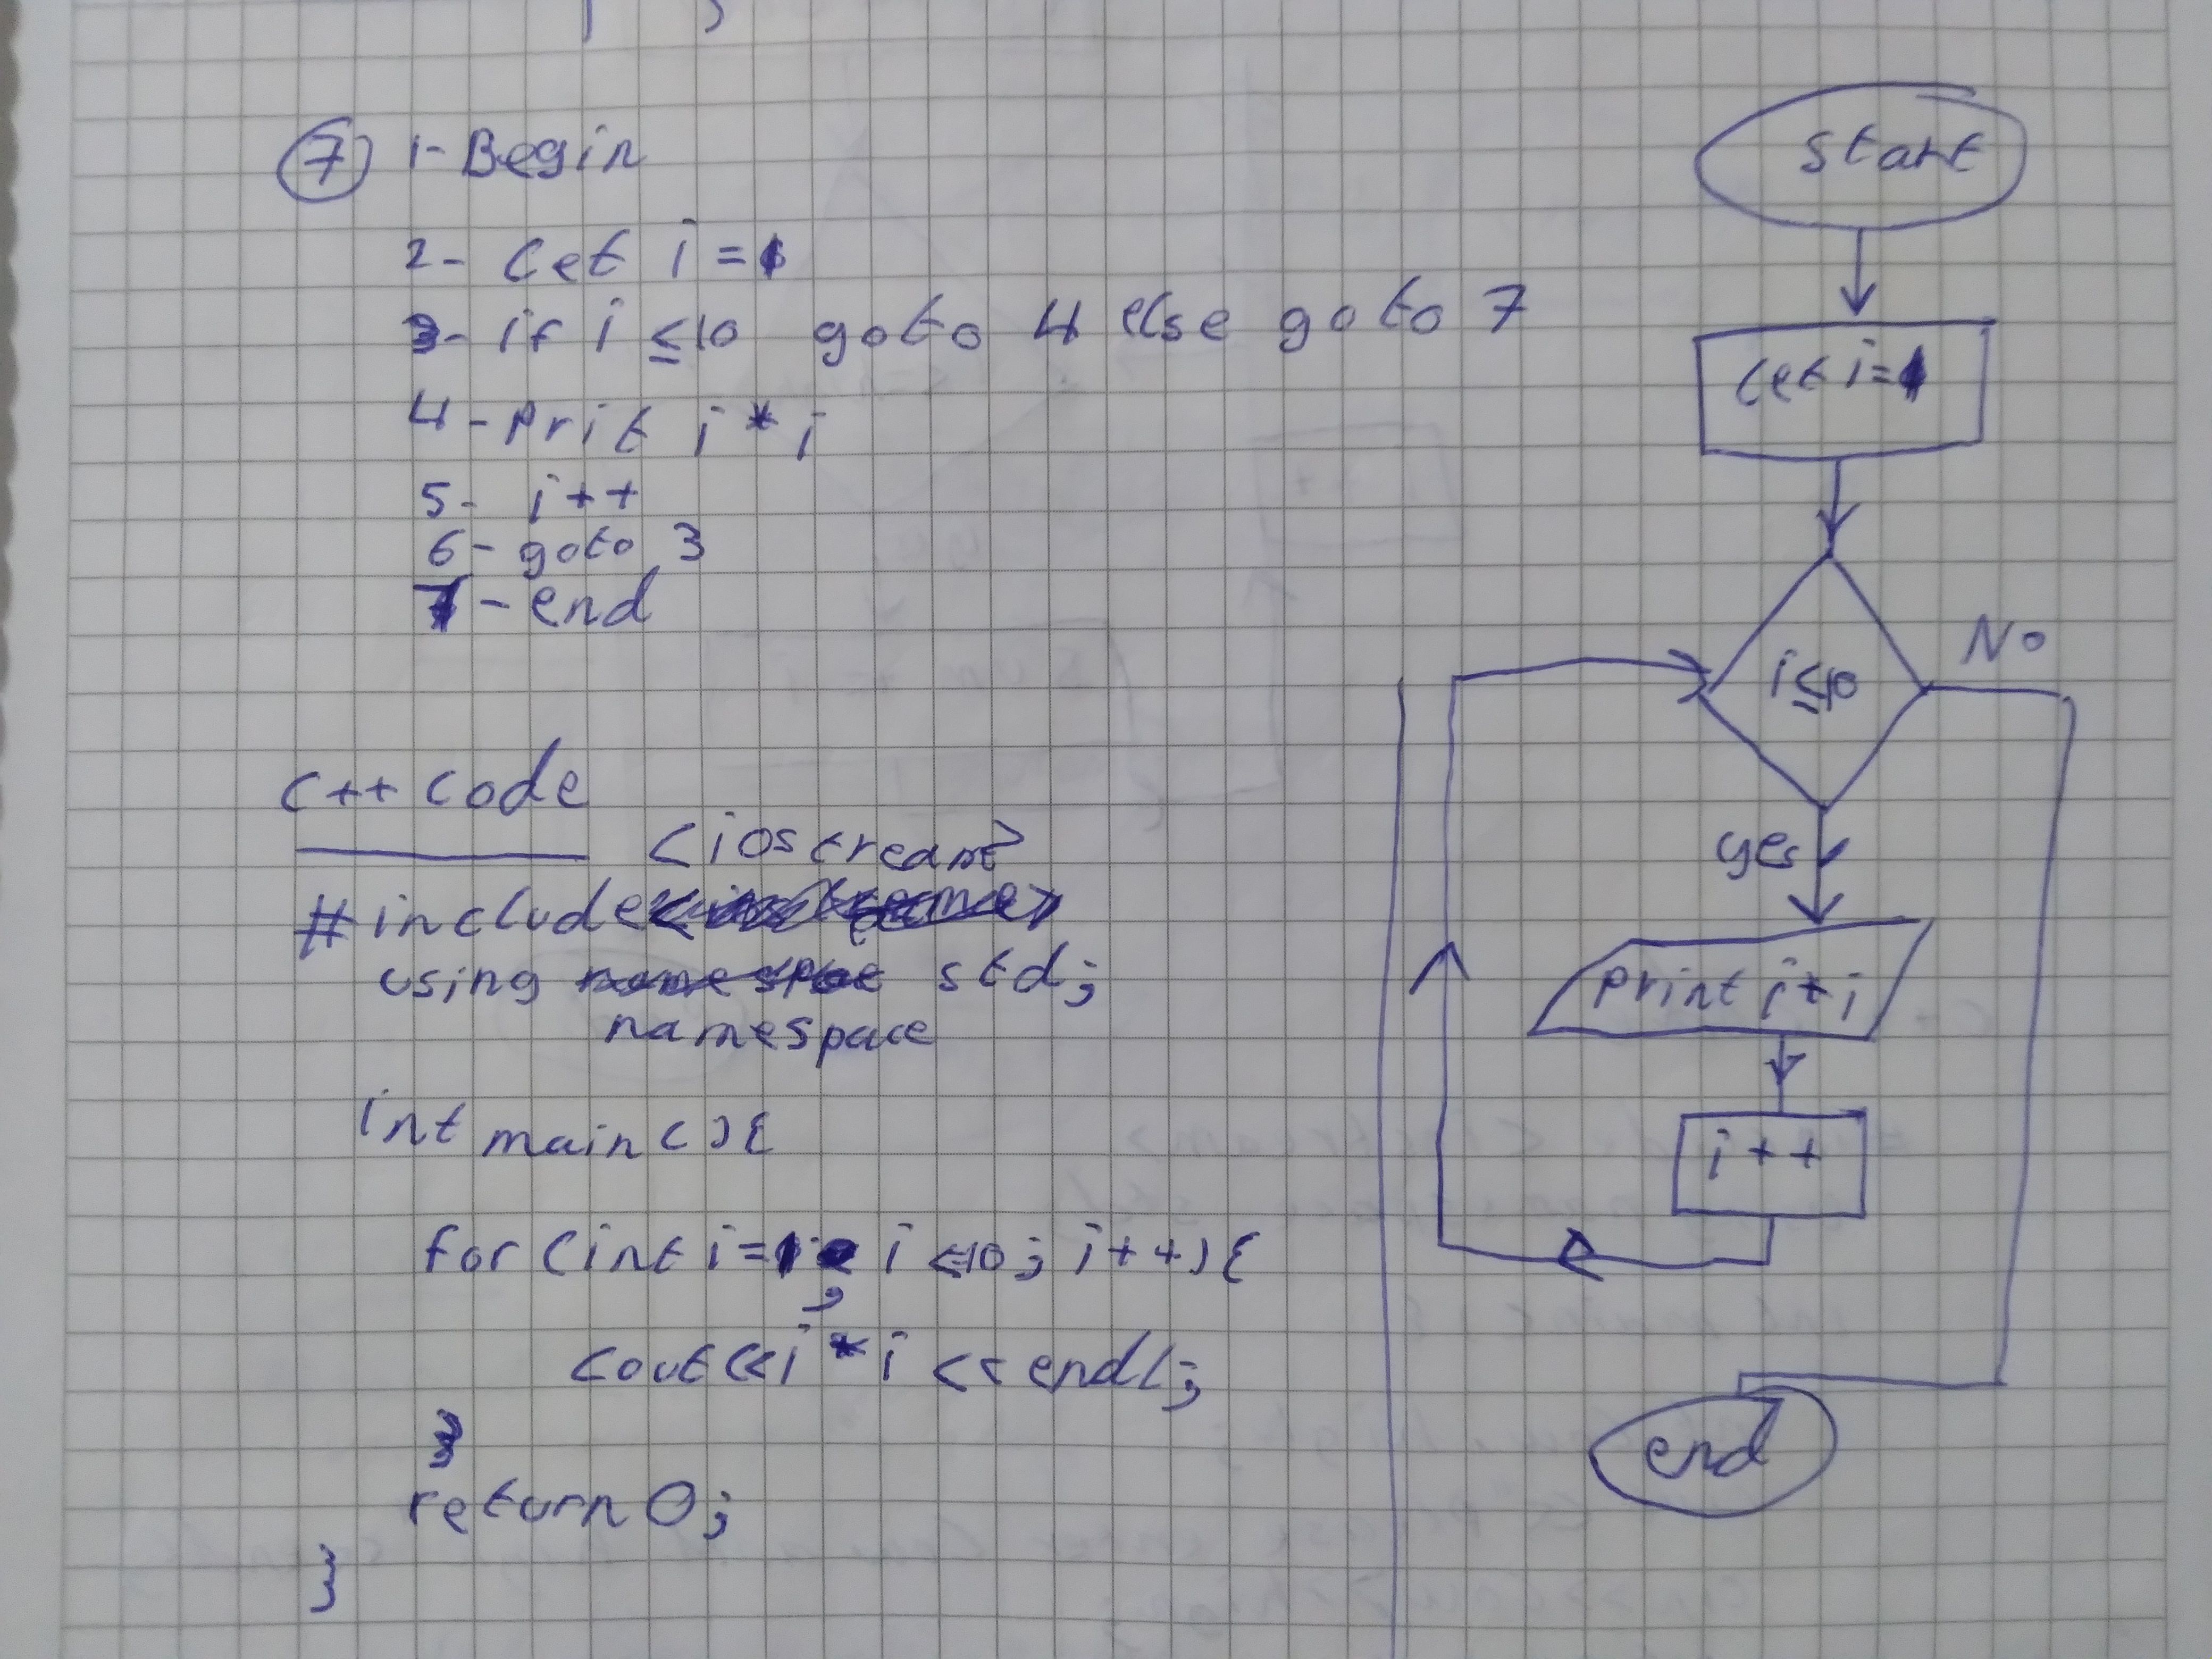 7 1- Begin
2- Let i = 1
3- if i ≤ 10 goto 4 else goto 7
4- Prit i * i
5- i++
6- goto 3
7- end
C++ code
<iostream>
#include
using std;
namespace
int main(){
for (int i=1; i<=10; i++){
cout<<i * i << endl;
}
return 0;
}
start
Let i=1
i≤10
No
yes
print i*i
i++
end